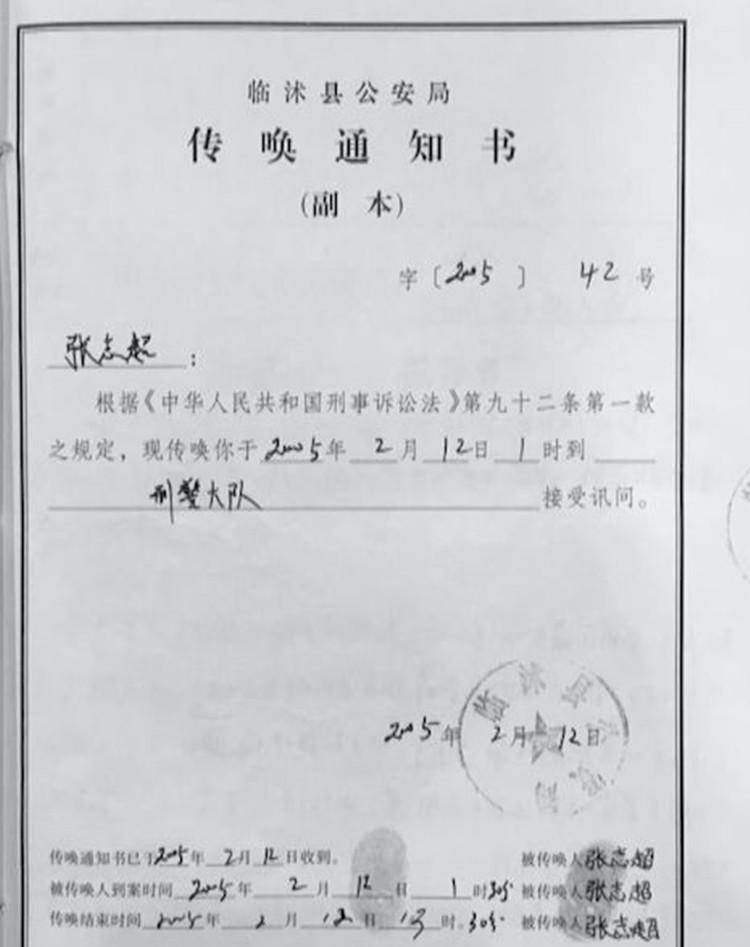 临沭县公安局
传唤通知书
(副 本)
字〔2005〕 42 号
张志超：
根据《中华人民共和国刑事诉讼法》第九十二条第一款
之规定，现传唤你于2005年 2月 12日 1时到
刑警大队 接受讯问。
临沭县公安局
2005年 2月 12日
传唤通知书已于2005年 2月 12日收到。 被传唤人张志超
被传唤人到案时间 2005年 2月 12日 1时30分 被传唤人张志超
传唤结束时间 2005年 2月 12日 时30分 被传唤人张志超